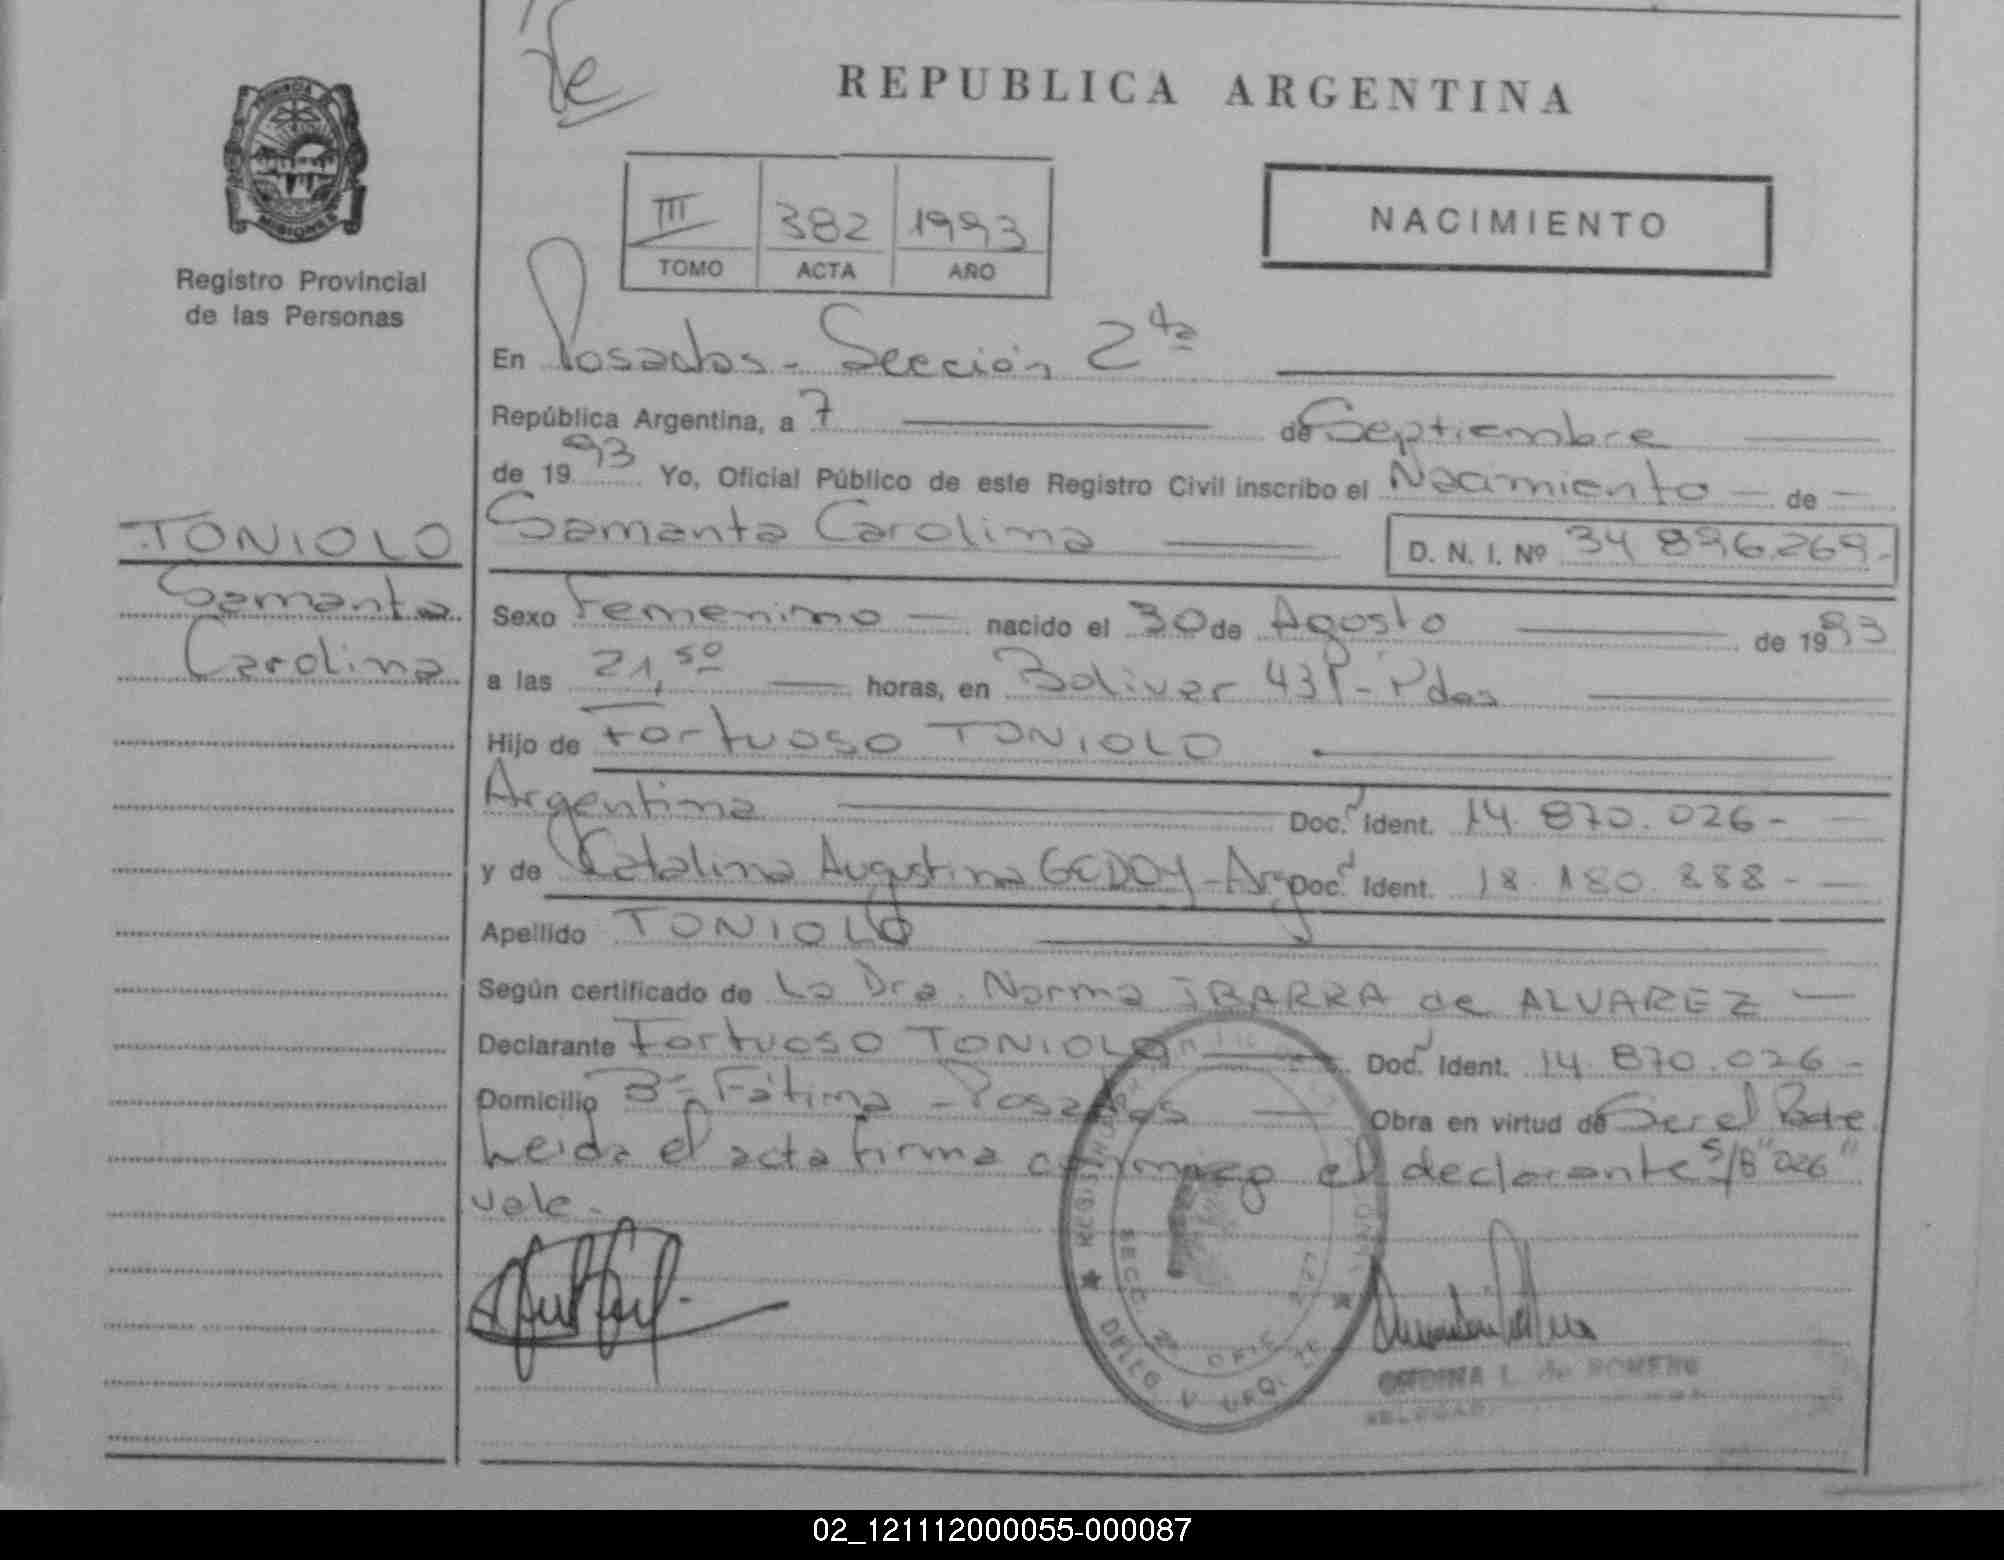 REPUBLICA ARGENTINA
PROVINCIA DE
MISIONES
Registro Provincial
de las Personas
III 382 1993
TOMO ACTA AÑO
NACIMIENTO
En Posadas - Sección 2da
República Argentina, a 7 de Septiembre
de 1993 Yo, Oficial Público de este Registro Civil inscribo el Nacimiento de
TONIOLO
Samanta
Carolina
Samanta Carolina D. N. I. Nº 34 896.269.
Sexo Femenino nacido el 30 de Agosto de 1993
a las 21,50 horas, en Bolivar - Pdas
Hijo de Fortuoso TONIOLO
Argentina Doc. Ident. 14.870.026-
y de Catalina Augustina GODOY - Arg Doc. Ident. 18.180.888-
Apellido TONIOLO
Según certificado de La Dra. Norma IBARRA de ALVAREZ
Declarante Fortuoso TONIOLO Doc. Ident. 14.870.026-
Domicilio Bº Fátima - Posadas Obra en virtud de Ser el Padre
Leida el acta firma conmigo el declarante s/B "026"
vale.
SECC 2ª OFIC
DELLO Y URQ.
ONDINA L. de ROMERO
02_121112000055-000087